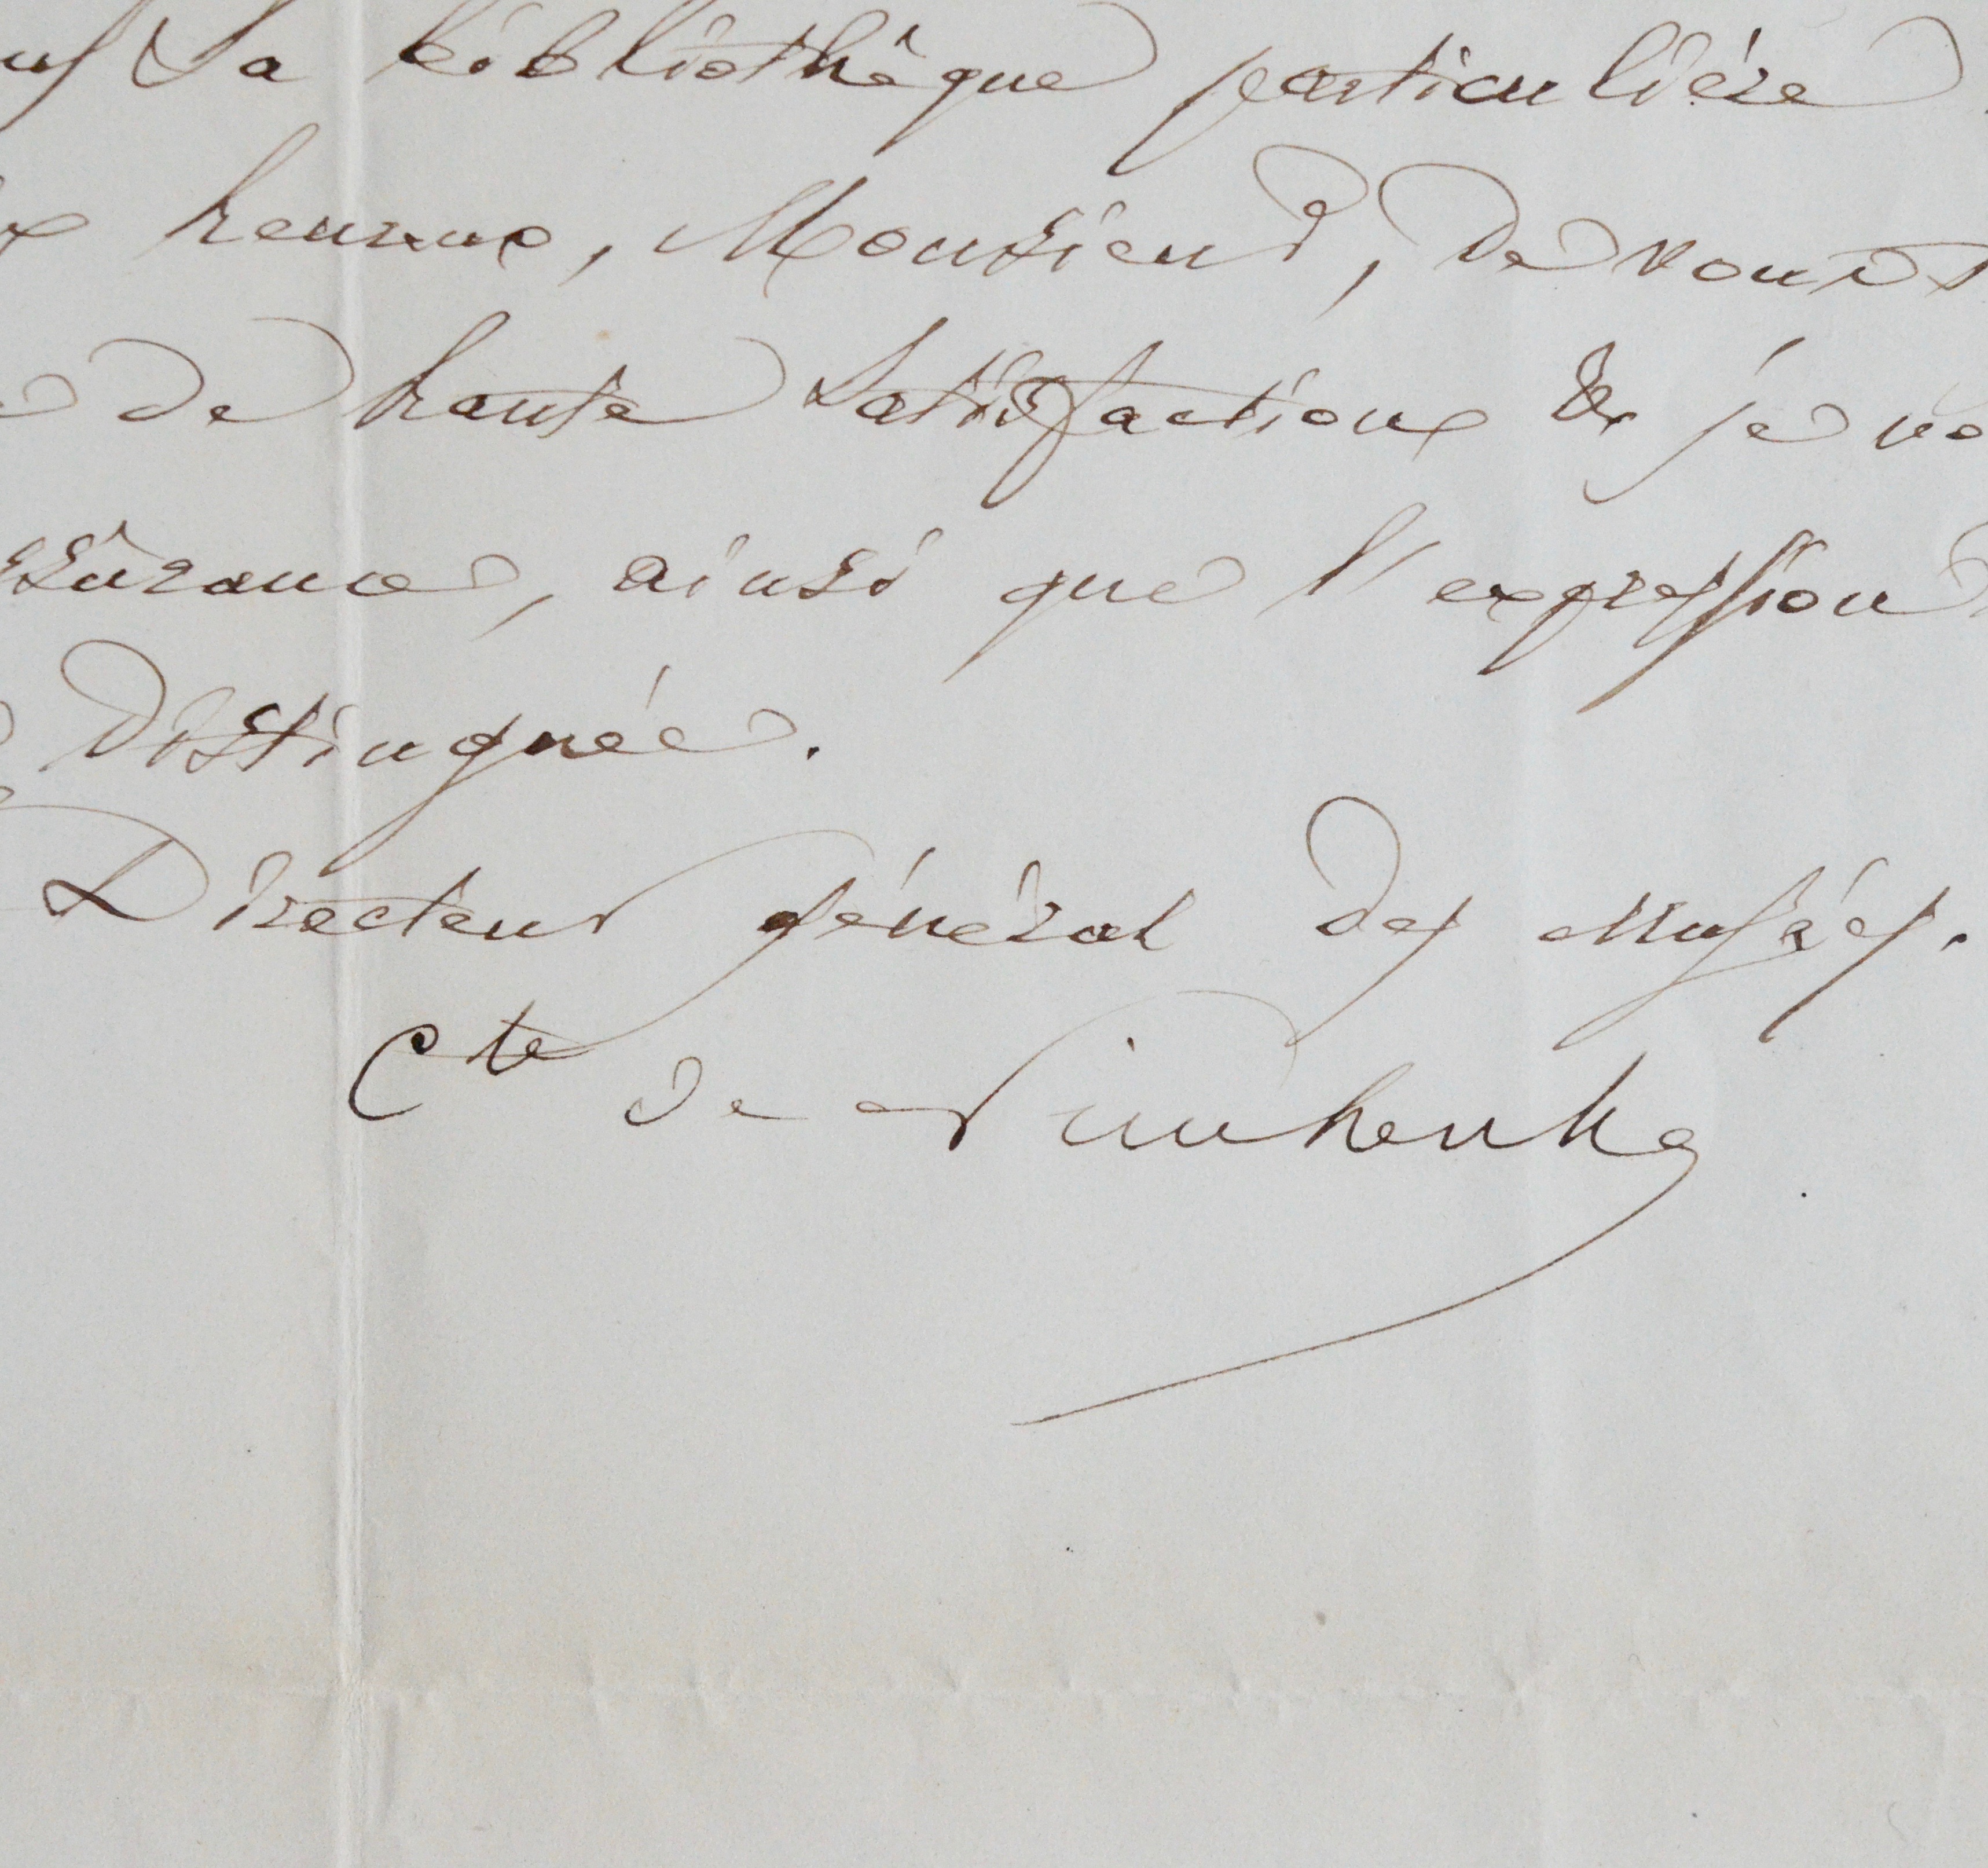 sa bibliothèque particulière
heureux, Monsieur, de vous
de haute satisfaction & je
ainsi que l'expression
distinguée.
Directeur général des Musées.
Cte de Nieuwerkerke